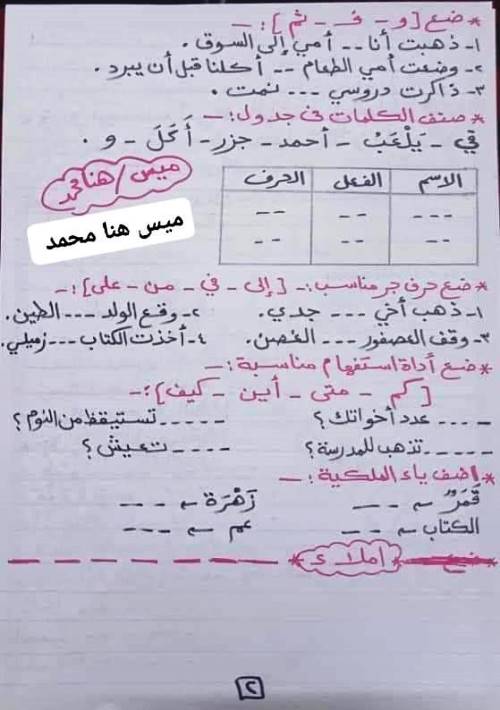 * ضع [و - ف - ثم] :-
١- ذهبت أنا -- أمي إلى السوق .
٢- وضعت أمي الطعام -- أكلنا قبل أن يبرد .
٣- ذاكرت دروسي --- نمت .
* صنف الكلمات فى جدول :-
في - يَلْعَبُ - أحمد - جزر - أَكَلَ - و .
ميس / هنا محمد
ميس هنا محمد
الاسم الفعل الحرف
--- -- --
-- -- --
* ضع حرف جر مناسب :- [إلى - في - من - على] :-
١- ذهب أخي --- جدي. ٢- وقع الولد --- الطين.
٣- وقف العصفور --- الغصن. ٤- أخذت الكتاب --- زميلي.
* ضع أداة استفهام مناسبة :-
[كم - متى - أين - كيف] :-
---- عدد أخواتك ؟ ----- تستيقظ من النوم ؟
----- تذهب للمدرسة ؟ ---- تعيش ؟
* اضف ياء الملكية :-
قَمَرٌ ← --- زَهْرَة ← ---
الكتاب ← -- عم ← ---
* ضع * املاء *
٢